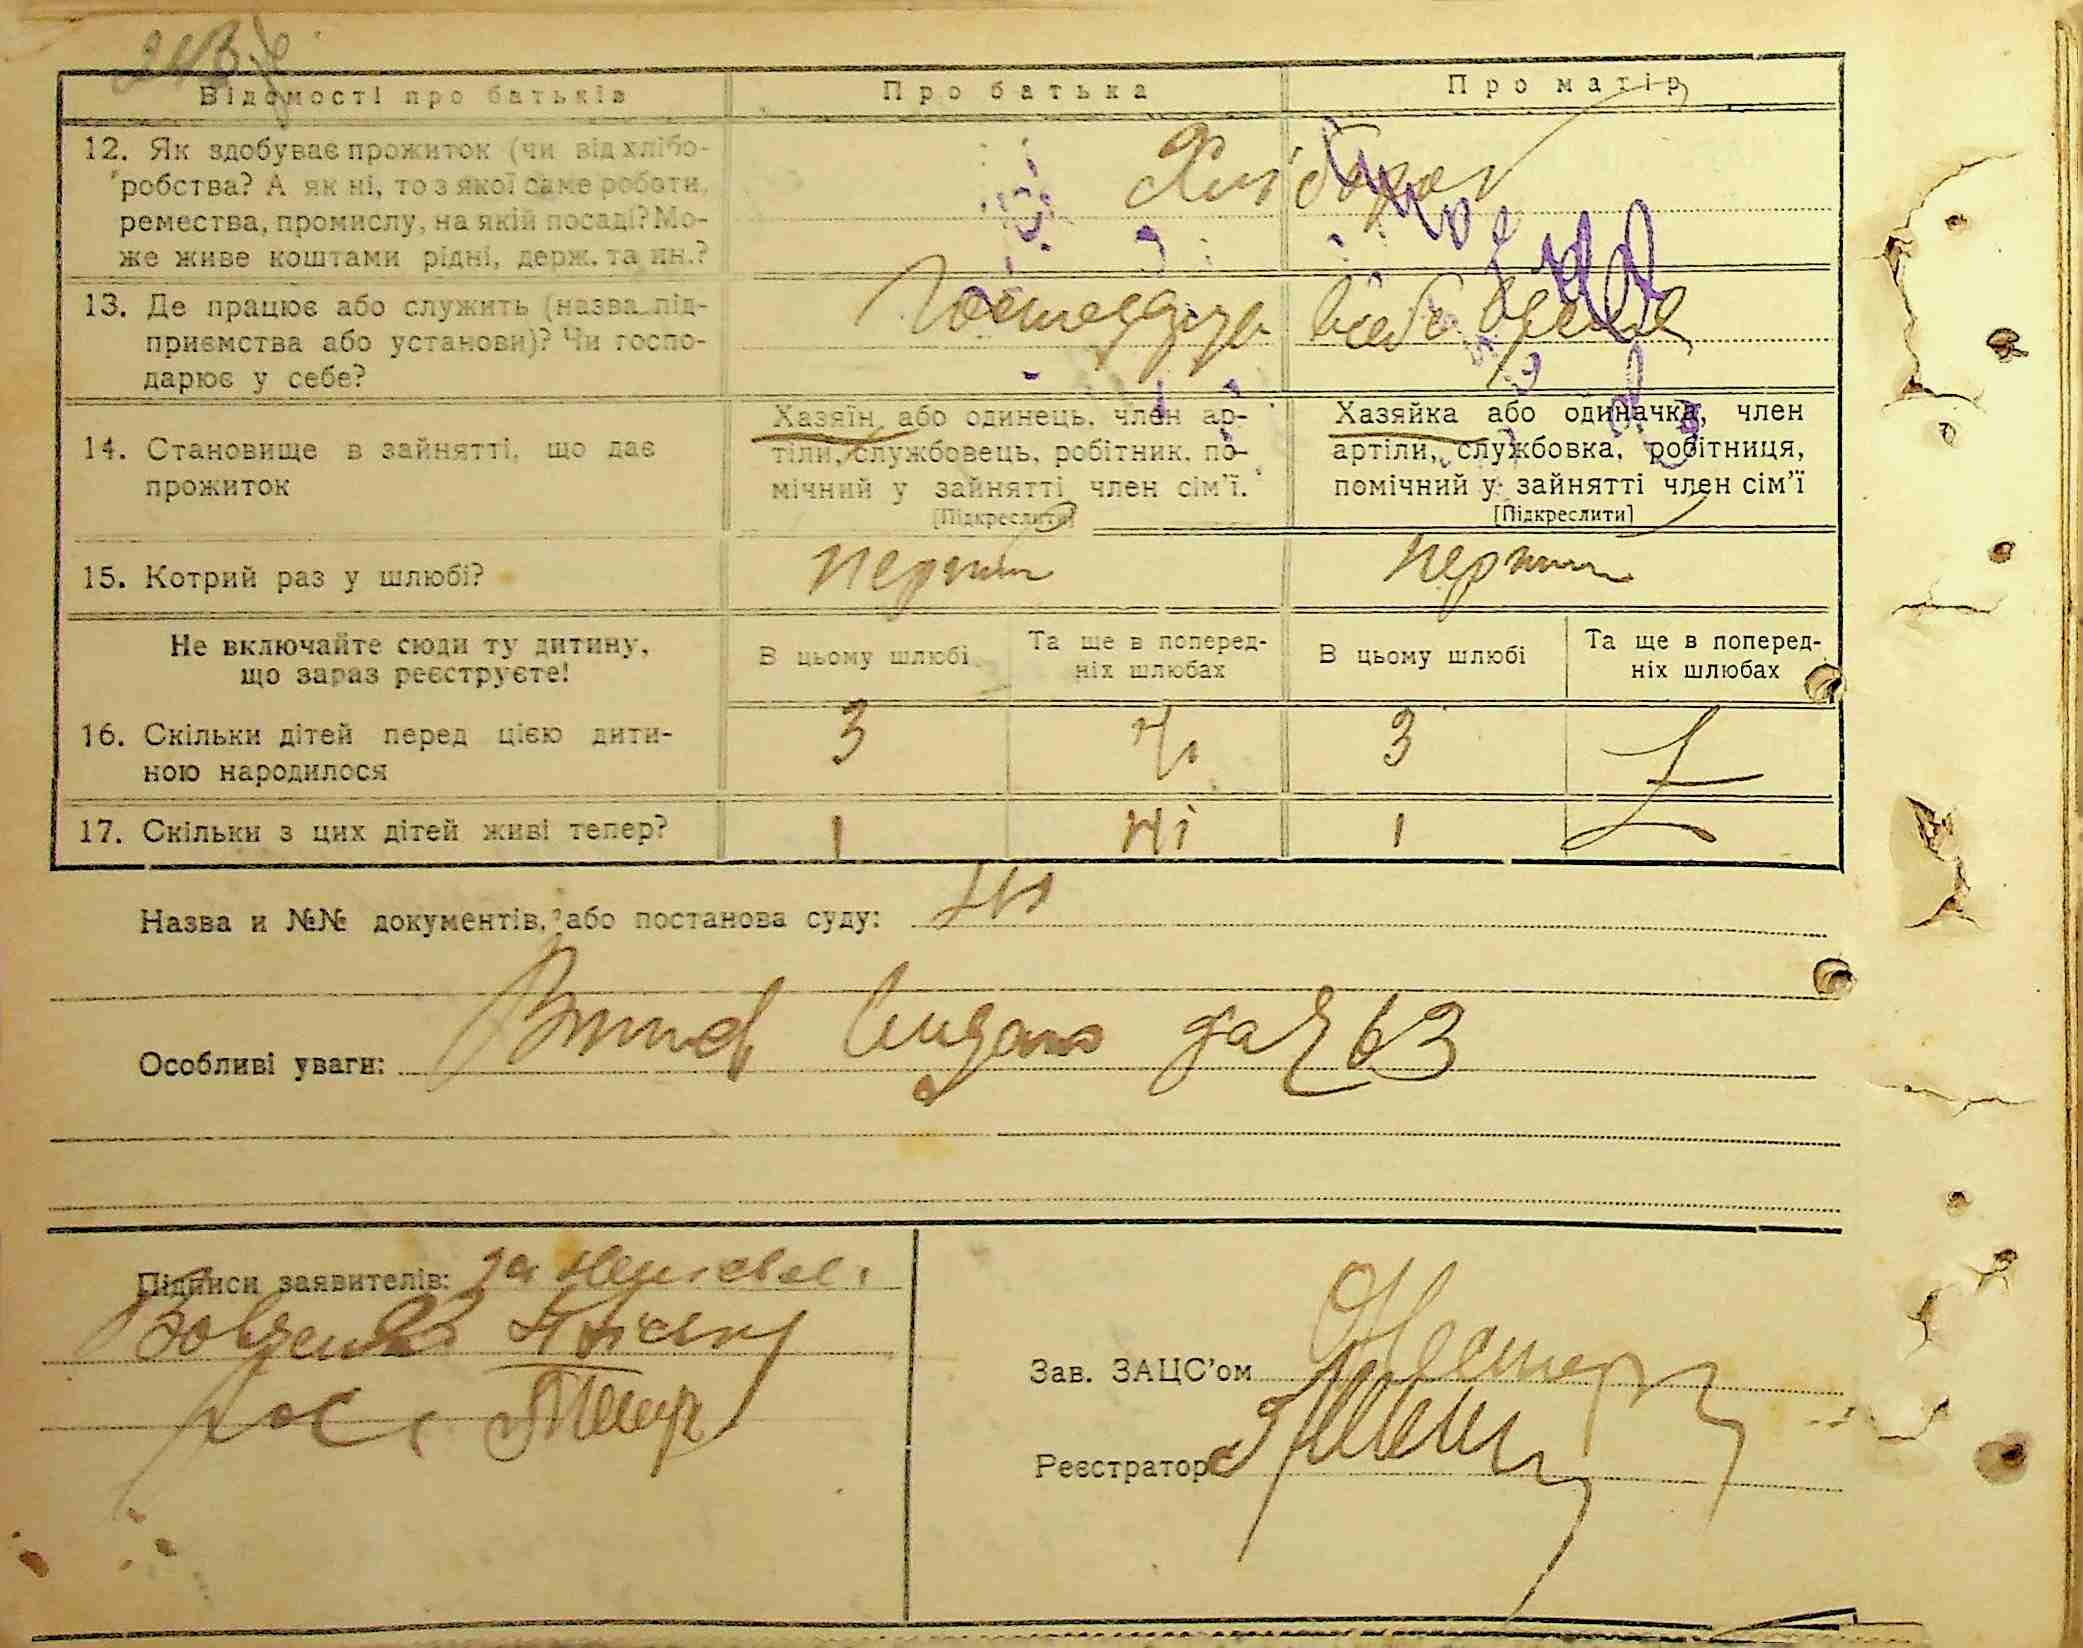 Відомості про батьків
Про батька
Про матір
12. Як здобуває прожиток (чи від хлібо-
робства? А як ні, то з якої саме роботи,
ремества, промислу, на якій посаді? Мо-
же живе коштами рідні, держ. та ин.?
Хлібороб
13. Де працює або служить (назва під-
приємства або установи)? Чи госпо-
дарює у себе?
14. Становище в зайнятті, що дає
прожиток
Хазяїн або одинець, член ар-
тіли, службовець, робітник, по-
мічний у зайнятті член сім'ї.
[Підкреслити]
Хазяйка або одиначка, член
артіли, службовка, робітниця,
помічний у зайнятті член сім'ї
[Підкреслити]
15. Котрий раз у шлюбі?
перший
перший
Не включайте сюди ту дитину,
що зараз реєструєте!
В цьому шлюбі
Та ще в поперед-
ніх шлюбах
В цьому шлюбі
Та ще в поперед-
ніх шлюбах
16. Скільки дітей перед цією дити-
ною народилося
3
ні
3
17. Скільки з цих дітей живі тепер?
1
ні
1
Назва и №№ документів, або постанова суду:
Особливі уваги:
видано за № 63
Підписи заявителів: за неписьмен.
Вовченко
Зав. ЗАЦС'ом
Реєстратор